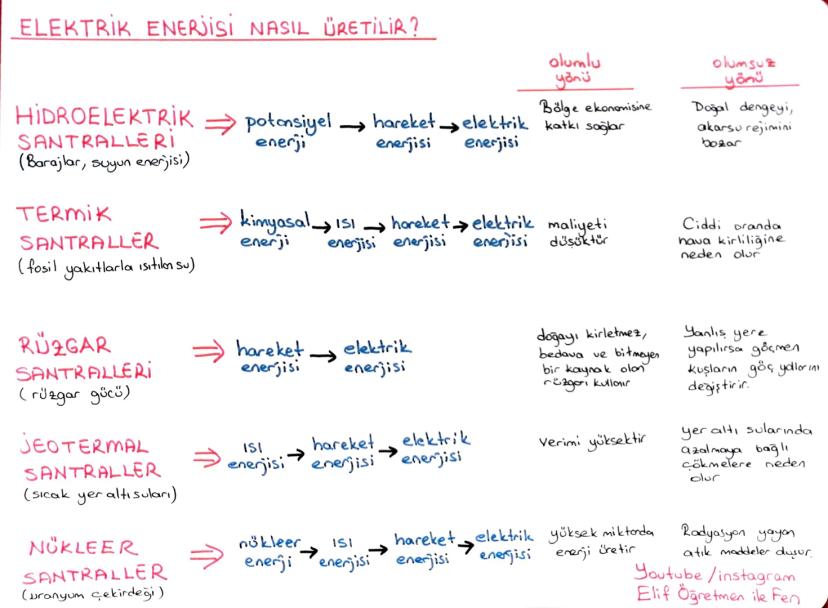 ELEKTRİK ENERJİSİ NASIL ÜRETİLİR?
olumlu yönü
olumsuz yönü
HİDROELEKTRİK SANTRALLERİ
(Barajlar, suyun enerjisi)
potansiyel enerji → hareket enerjisi → elektrik enerjisi
Bölge ekonomisine
katkı sağlar
Doğal dengeyi,
akarsu rejimini
bozar
TERMİK
SANTRALLER
(fosil yakıtlarla ısıtılan su)
kimyasal enerji → ISI enerjisi → hareket enerjisi → elektrik enerjisi
maliyeti
düşüktür
Ciddi oranda
hava kirliliğine
neden olur
RÜZGAR
SANTRALLERİ
(rüzgar gücü)
hareket enerjisi → elektrik enerjisi
doğayı kirletmez,
bedava ve bitmeyen
bir kaynak olan
rüzgarı kullanır
Yanlış yere
yapılırsa göçmen
kuşların göç yollarını
değiştirir.
JEOTERMAL
SANTRALLER
(sıcak yer altı suları)
ISI enerjisi → hareket enerjisi → elektrik enerjisi
Verimi yüksektir
yer altı sularında
azalmaya bağlı
çökmelere neden
olur
NÜKLEER
SANTRALLER
(uranyum çekirdeği)
nükleer enerji → ISI enerjisi → hareket enerjisi → elektrik enerjisi
yüksek miktarda
enerji üretir
Radyasyon yayan
atık maddeler oluşur.
Youtube / instagram
Elif Öğretmen ile Fen